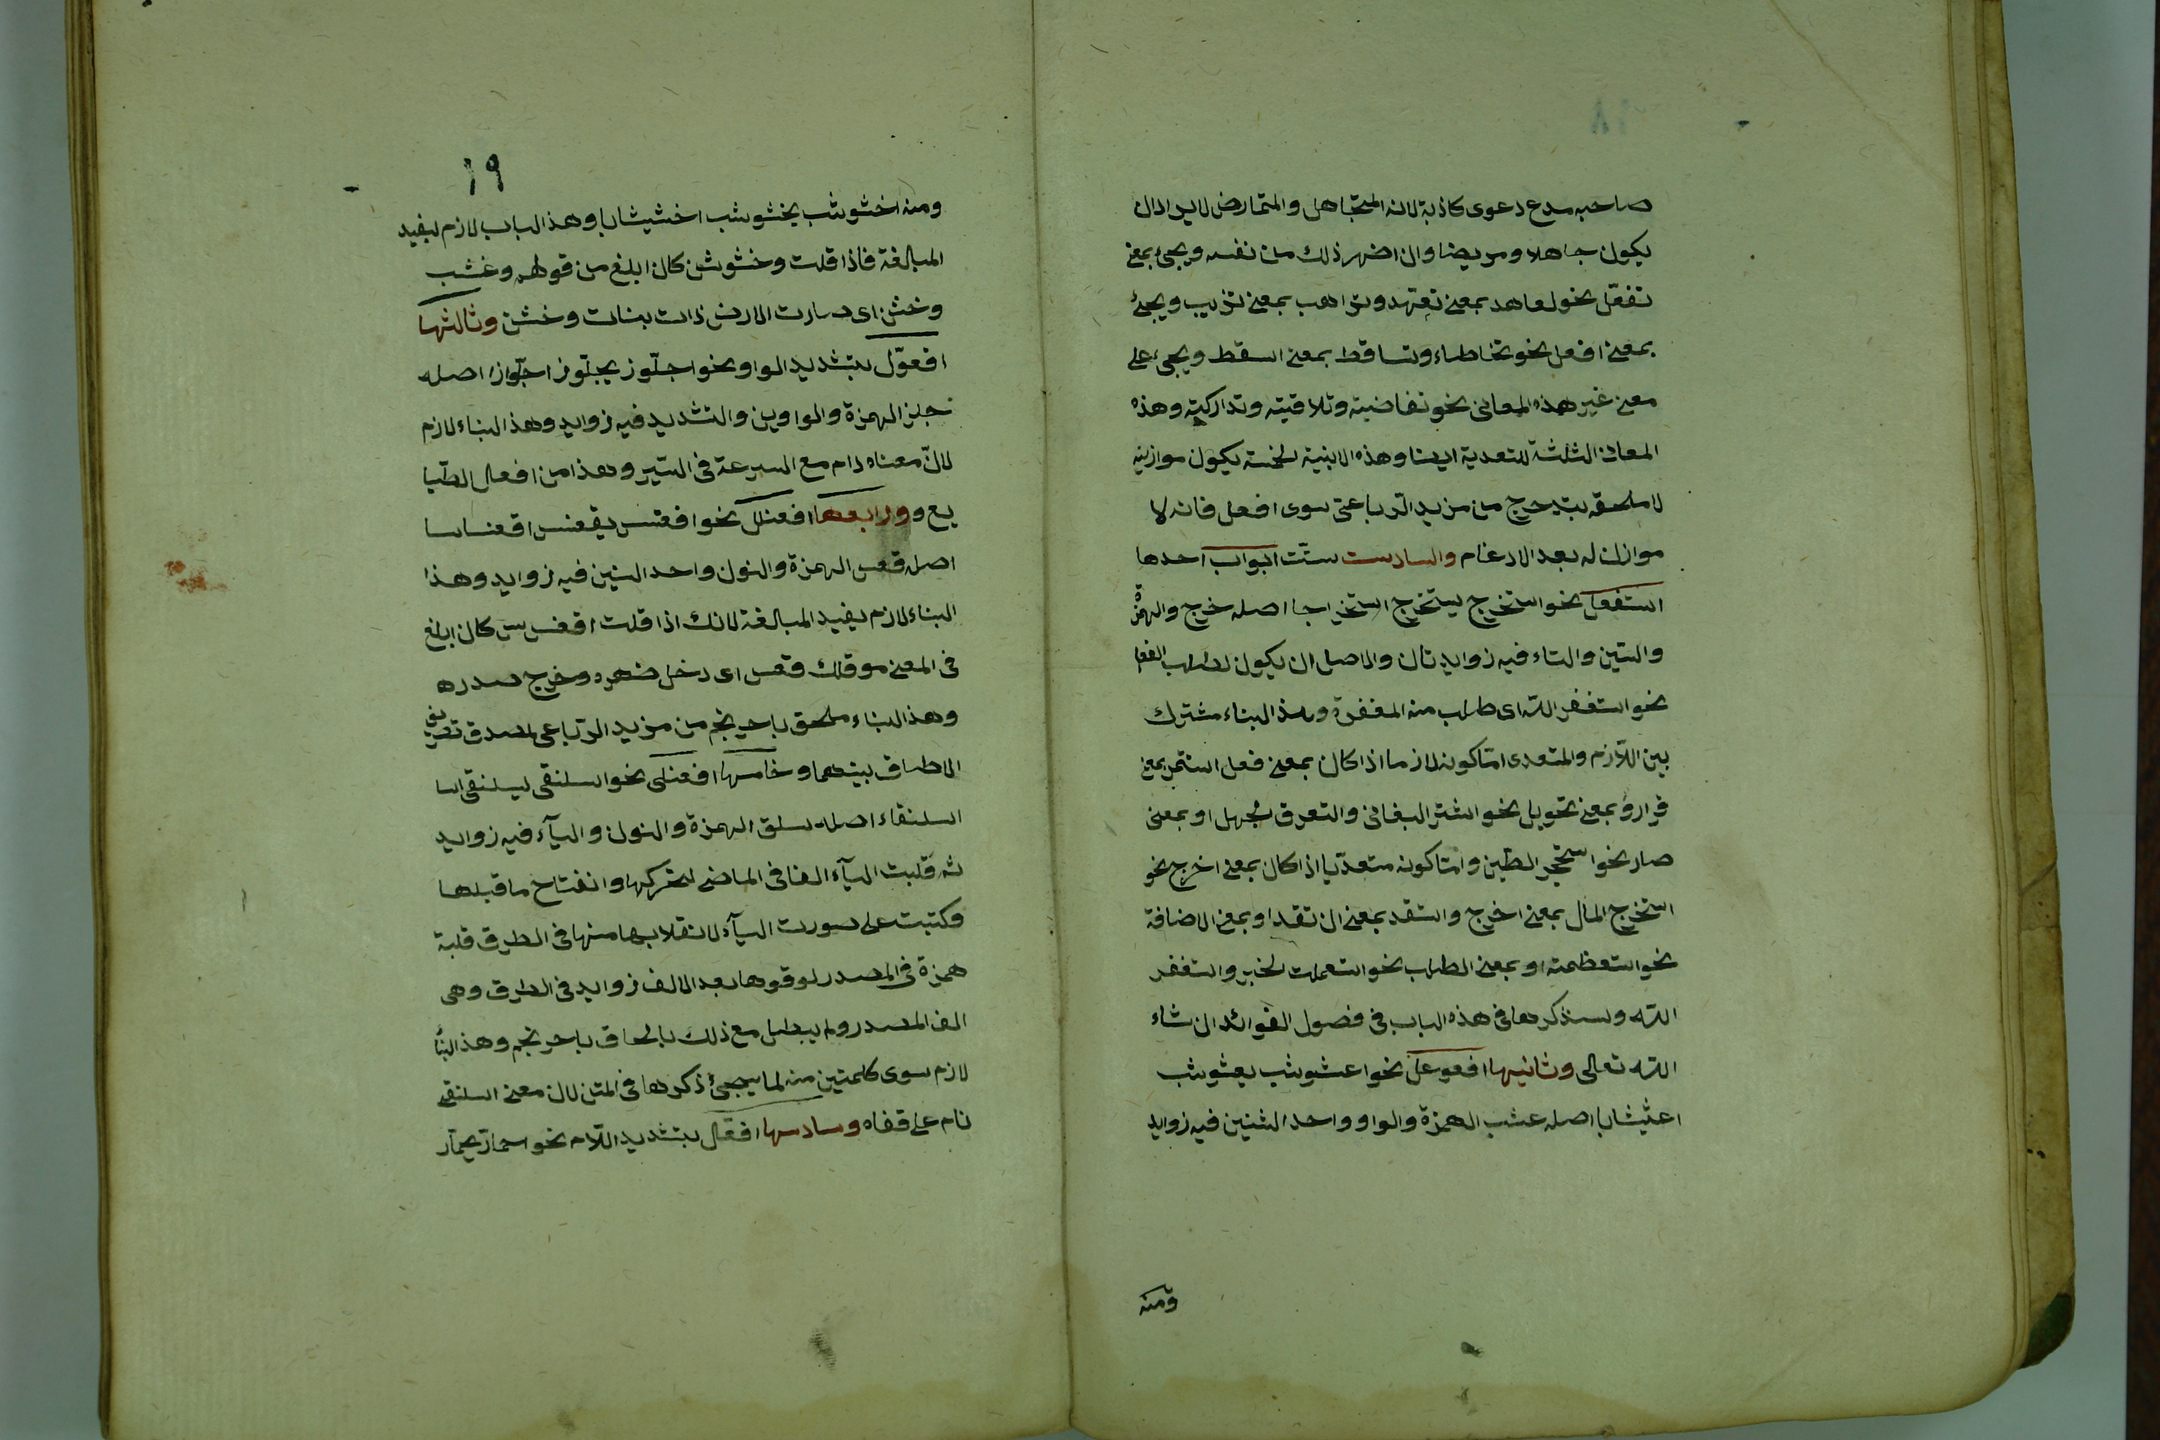 صاحبه مدع دعوى كاذبة لانه المتجاهل والمتمارض لا يراد ان
يكون جاهلا ومريضا وان اضهر ذلك من نفسه ويجئ بمعنى
تفعّل نحو تعاهد بمعنى تعتهد وتراهب بمعنى ترهيب ويجئ
بمعنى افعل نحو تخاطاء وتساقط بمعنى اسقط ويجئ على
معنى غير هذه المعانى نحو تقاضيته وتلاقيته وتداركته وهذه
المعانى الثلثة للتعدية ايضا وهذه الابنية الخمسة يكون موازنيه
لا ملحقه بتدحرج من مزيد الرباعى سوى افعل فانه لا
موازن له بعد الادغام والسادست ستّت ابواب احدها
استفعل نحو استخرج يستخرج استخراجا اصله خرج والهمزة
والسّين والتاء فيه زوايدتان والاصل ان يكون لطلب الفعل
نحو استغفر اللّه اى طلب منه المغفرة وهذ البناء مشترك
بين اللّازم والمتعدى امّا كونه لازما اذا كان بمعنى فعل استمرّ بمعنى
قرارو بمعنى تحويل نحو استتر البغانى والتعرق لجهل او بمعنى
صار نحو استحجر الطين وامّا كونه متعدّيا اذا كان بمعنى اخرج نحو
استخرج المال بمعنى اخرج واستقد بمعنى ان تقد او بمعنى الاضافة
نحو استعظمته او بمعنى الطلب نحو استعملت الخبر واستغفر
اللّه وسنذكرها فى هذه الباب فى فصول الفوائد ان شاء
اللّه تعالى وثانيها افعوعل نحو اعشوشب يعشوشب
اعشيشابا اصله عشب الهمزة والواو واحد الشنين فيه زوايد
ومنه
١٩
ومنه اخشوشب يخشوشب اخشيشابا وهذ الباب لازم ليفيد
المبالغة فاذا قلت وخشوشن كان ابلغ من قولهم وعشب
وخشن اى صارت الارض ذات بنات وخشن وثالثها
افعوّل بتشديد الواو نحو اجلّوز يجلّوز اجلّوازا اصله
جلز الهمزة والواوين والتشديد فيه زوايد وهذ البناء لازم
لانّ معناه دام مع السرعة فى السّير وهذا من افعال الطّبا
يع و ورابعها افعنلل نحو اقعنسس يقعنسس اقعنساسا
اصله قعس الهمزة والنون واحد السّنين فيه زوايد وهذا
البناء لازم يفيد المبالغة لانك اذا قلت اقعنسس كان ابلغ
فى المعنى موقلك قعس اى دخل ضهره وخرج صدره
وهذ البناء ملحق باحرنجم من مزيد الرّباعى لصدق تعريف
الاطباق بينهما وخامسها افعنلى نحو اسلنقى يسلنقى اسا
اسلنقاء اصله سلق الهمزة والنون والياء فيه زوايد
ثم قلبت الياء الفا فى الماضى لتحركها وانفتاح ما قبلها
وكتبت على صورت الياء لانقلابها منها فى الطرق قلبة
همزة فى المصدر لوقوها بعد الالف زوايد فى الطرق وهى
الف المصدر ولم يبطل مع ذلك بالحاق باحرنجم وهذ البناء
لازم سوى كلمتين منه لما سيجئ ذكرها فى المتن لان معنى اسلنقى
نام على قفاه وسادسها افعّال بتشديد اللّام نحو احمارّ يحمارّ